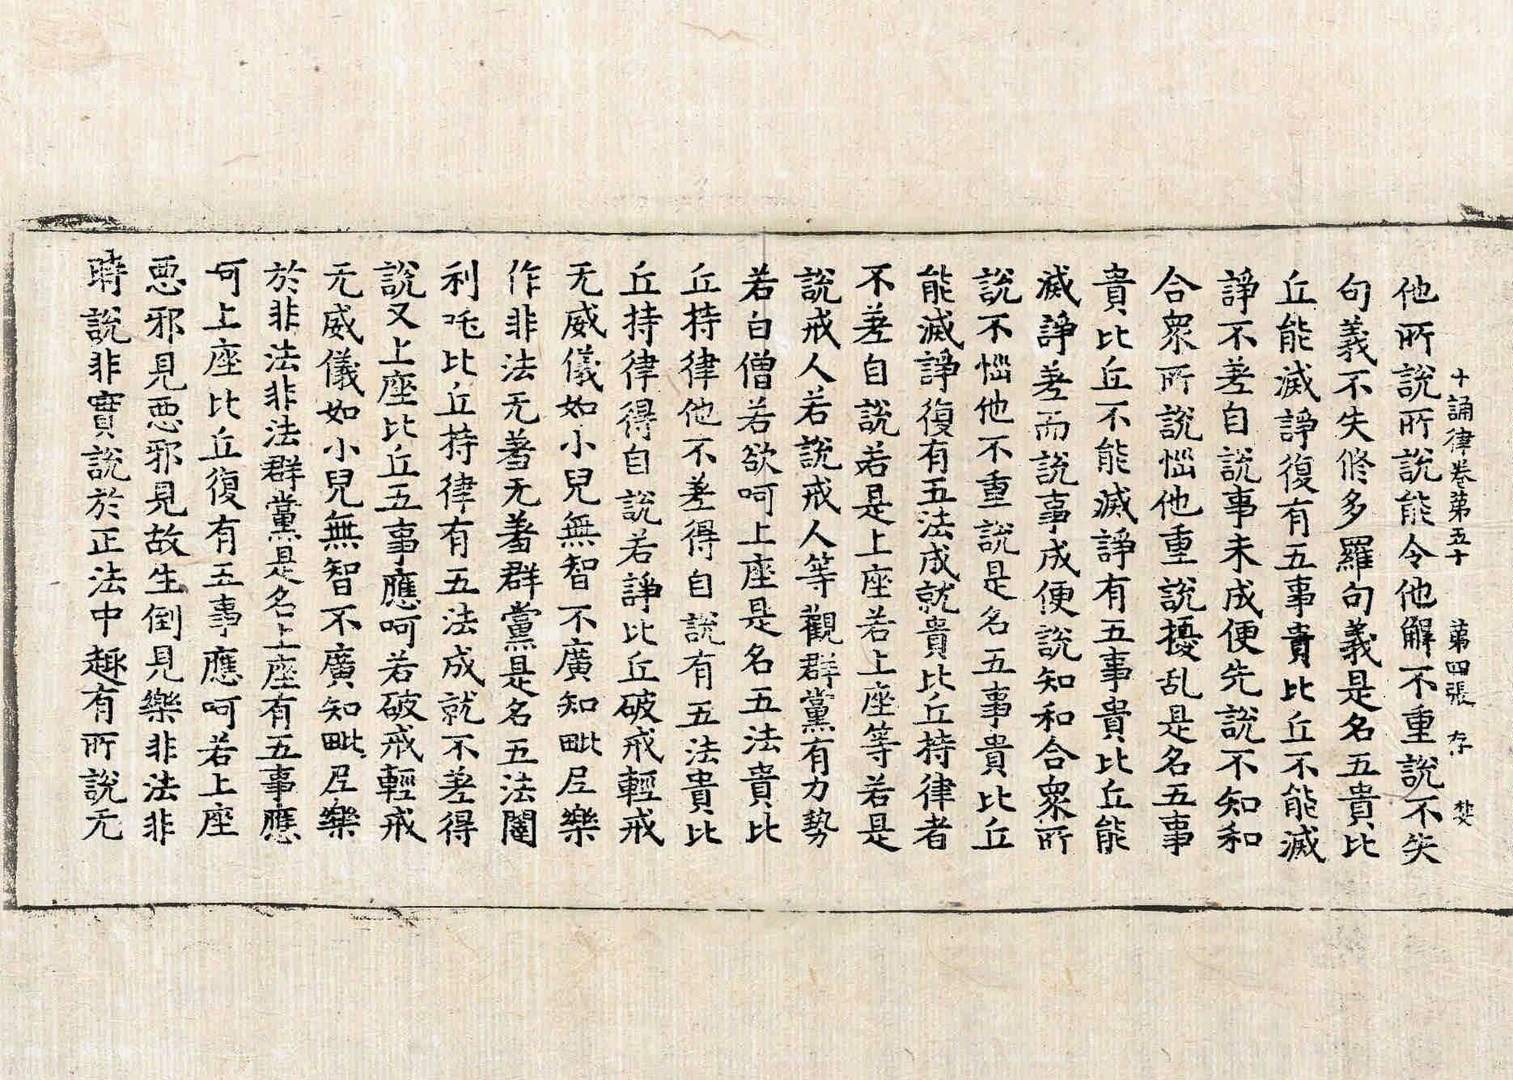 十誦律卷第五十 第四張 存 㭊
他所說所說能令他解不重說不失
句義不失修多羅句義是名五貴比
丘能滅諍復有五事貴比丘不能滅
諍不差自說事未成便先說不知和
合眾所說惱他重說擾乱是名五事
貴比丘不能滅諍有五事貴比丘能
滅諍差而說事成便說知和合眾所
說不惱他不重說是名五事貴比丘
能滅諍復有五法成就貴比丘持律者
不差自說若是上座若上座等若是
說戒人若說戒人等觀群黨有力勢
若白僧若欲呵上座是名五法貴比
丘持律他不差得自說有五法貴比
丘持律得自說若諍比丘破戒輕戒
无威儀如小兒無智不廣知毗尼樂
作非法无著无著群黨是名五法闥
利吒比丘持律有五法成就不差得
說又上座比丘五事應呵若破戒輕戒
无威儀如小兒無智不廣知毗尼樂
於非法非法群黨是名上座有五事應
呵上座比丘復有五事應呵若上座
惡邪見惡邪見故生倒見樂非法非
時說非實說於正法中趣有所說无